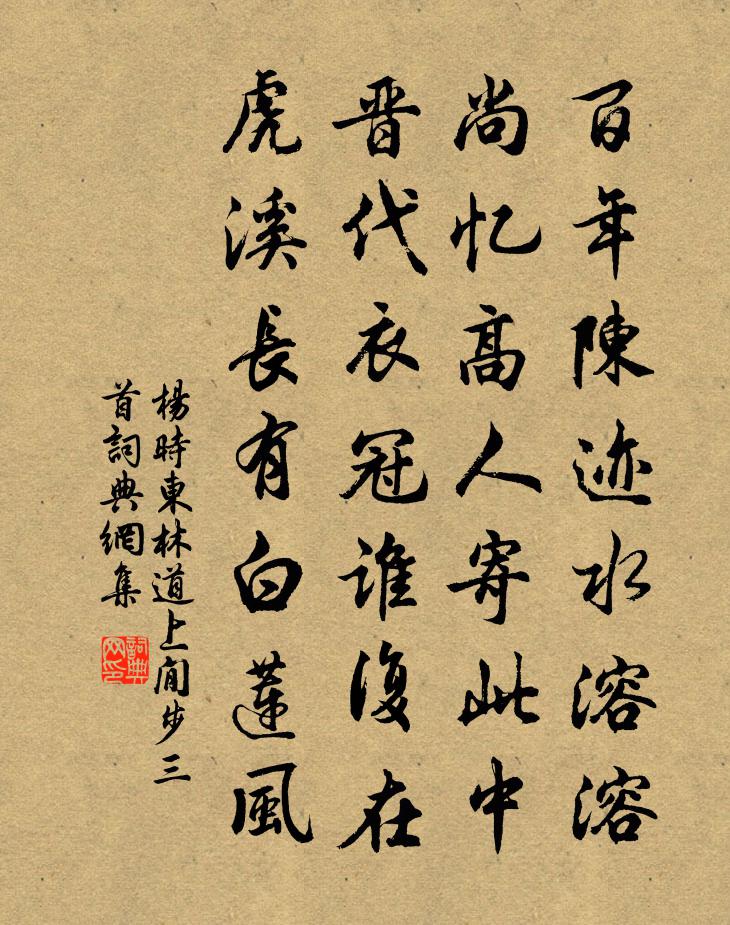 百年陳迹水溶溶
尚忆高人寄此中
晋代衣冠谁復在
虎溪長有白蓮風
楊時東林道上閒步三
首詞典網集
詞典
网印